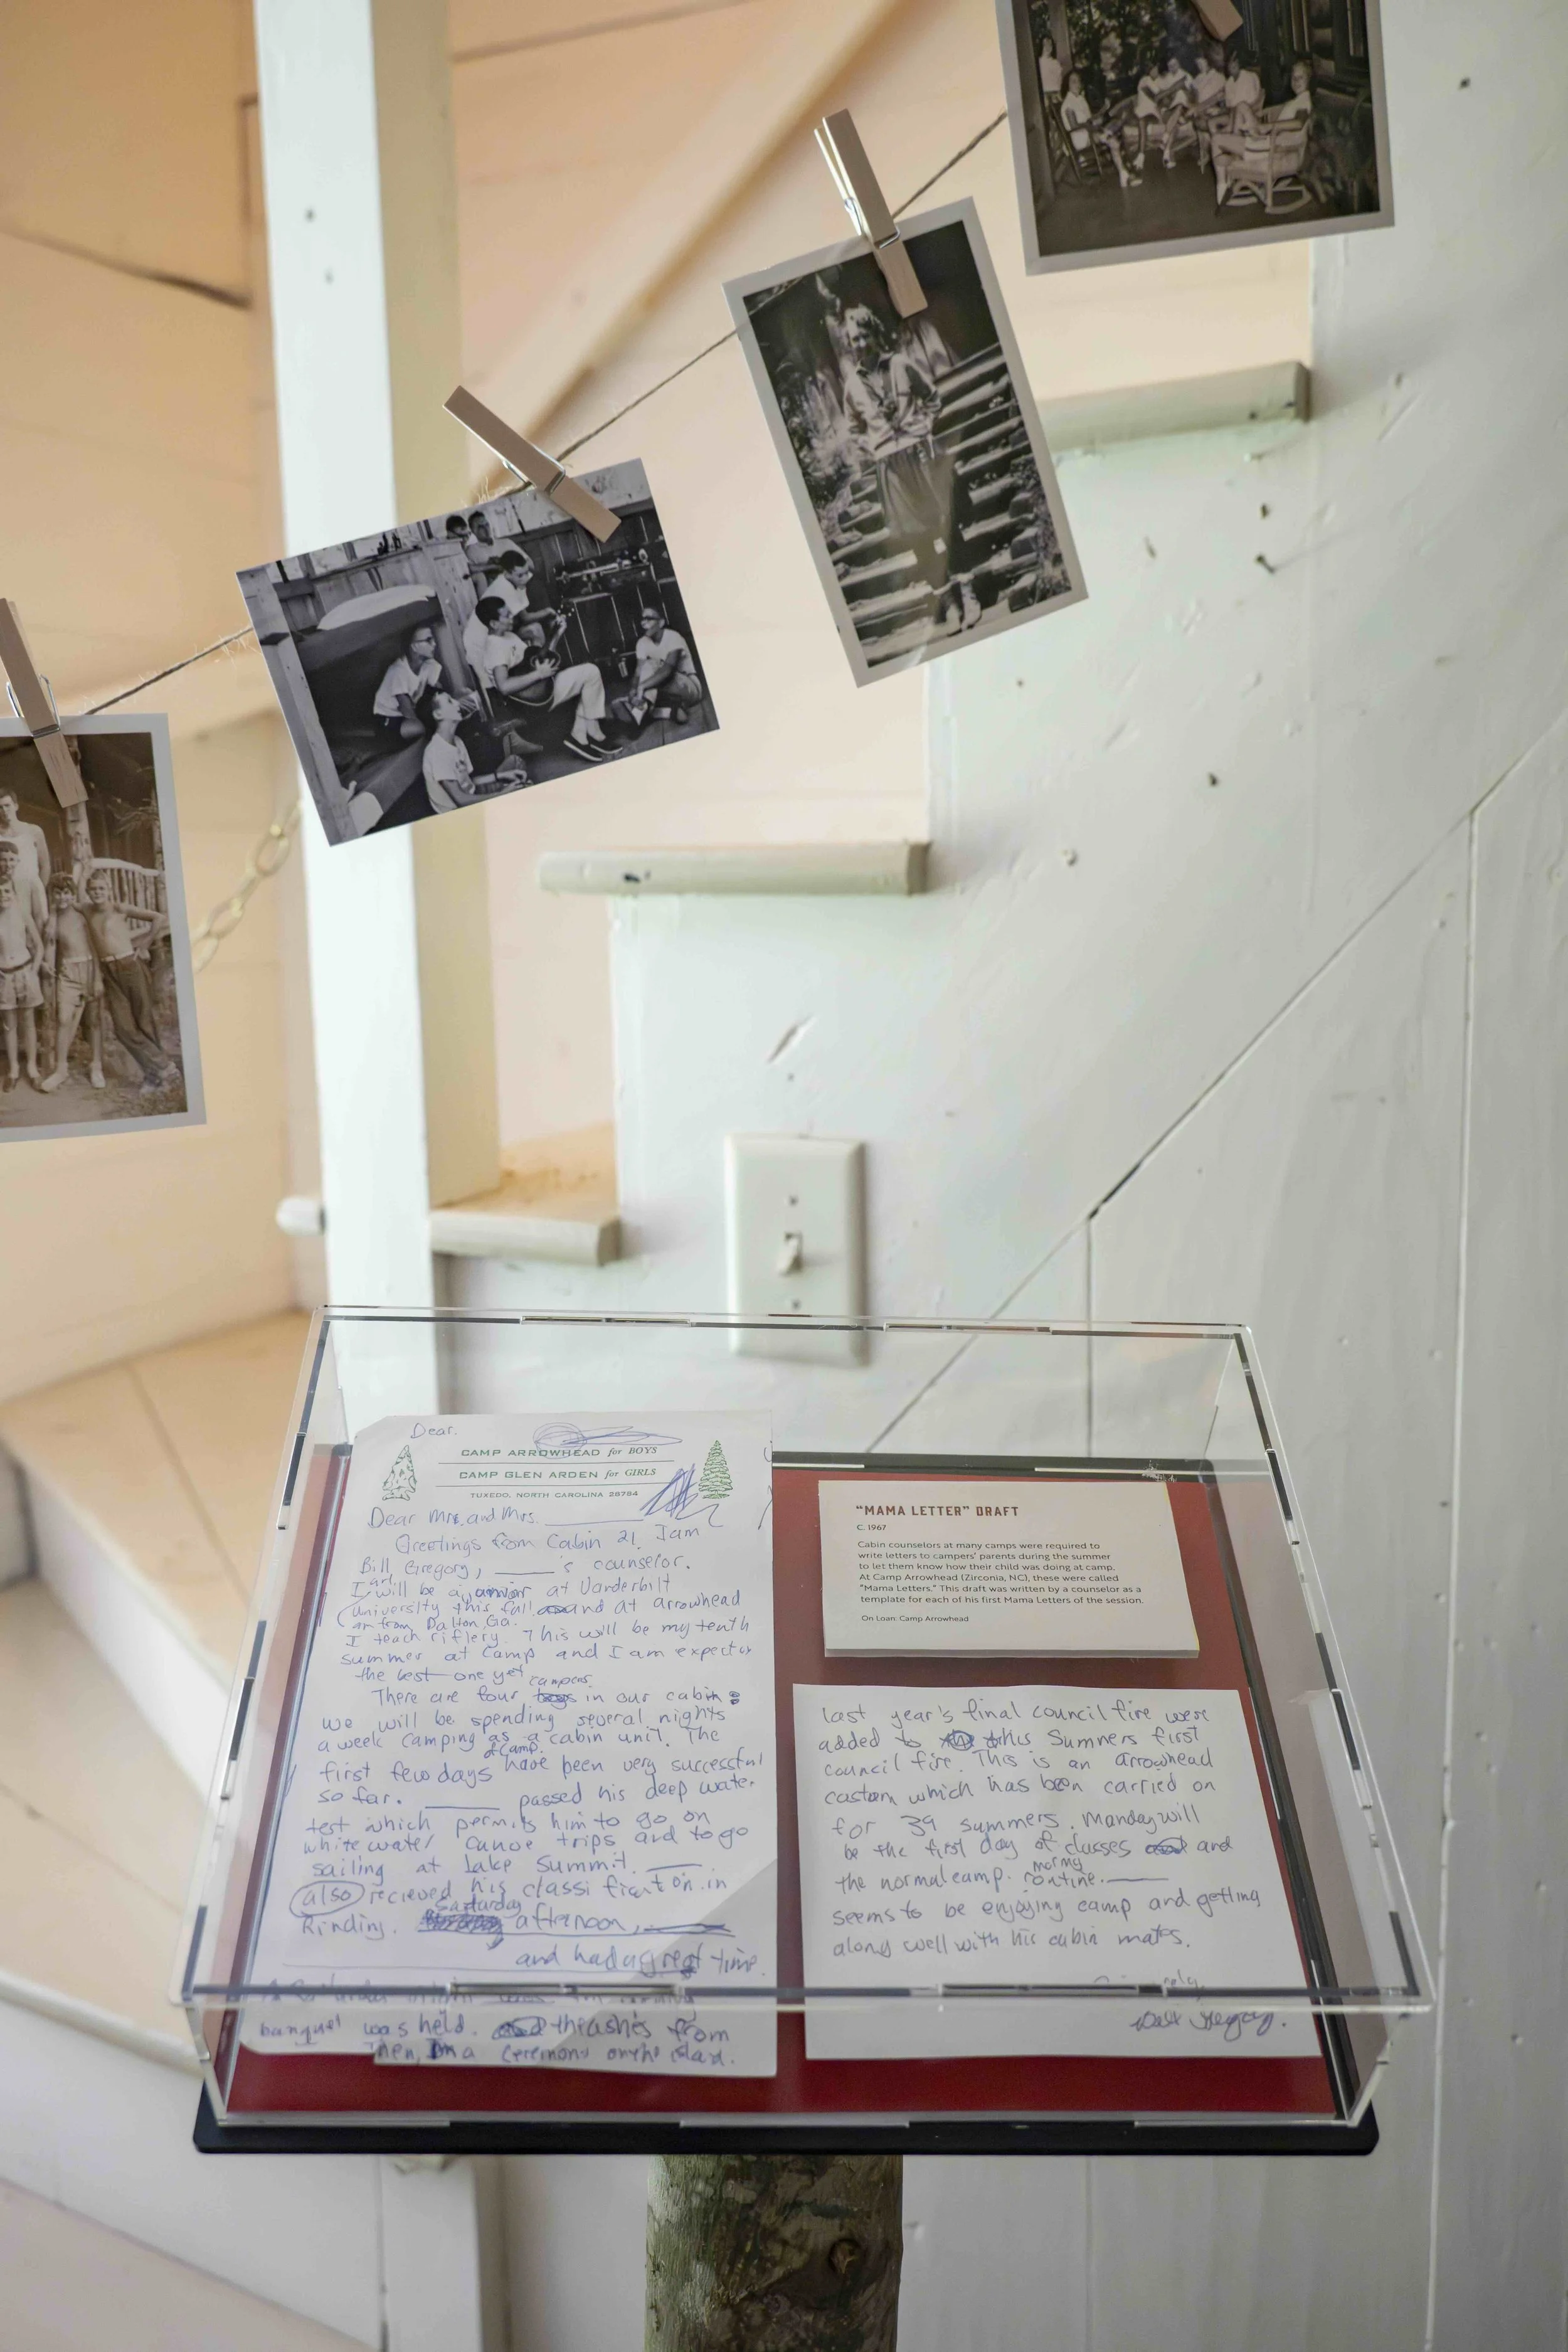 Dear.
CAMP ARROWHEAD for BOYS
CAMP GLEN ARDEN for GIRLS
TUXEDO, NORTH CAROLINA 28784
Dear Mr. and Mrs.
Greetings from Cabin 21. I am
Bill Gregory, _____'s counselor.
I will be a junior at Vanderbilt
University this fall and at arrowhead
am from Dalton, Ga.
I teach riflery. This will be my tenth
summer at camp and I am expecting
the best one yet
campers
There are four boys in our cabin
we will be spending several nights
a week camping as a cabin unit. The
of camp
first few days have been very successful
so far. _____ passed his deep water
test which permits him to go on
white water canoe trips and to go
sailing at Lake Summit. _____
also recieved his classification in
Saturday
Rinding. afternoon,
and had a great time.
banquet was held. thashes from
Then, in a ceremony on the island.
"MAMA LETTER" DRAFT
C. 1967
Cabin counselors at many camps were required to
write letters to campers' parents during the summer
to let them know how their child was doing at camp.
At Camp Arrowhead (Zirconia, NC), these were called
"Mama Letters." This draft was written by a counselor as a
template for each of his first Mama Letters of the session.
On Loan: Camp Arrowhead
last year's final council fire were
added to this Summers first
council fire. This is an arrowhead
custom which has been carried on
for 39 summers. Monday will
be the first day of classes and
the normal camp routine. _____
seems to be enjoying camp and getting
along well with his cabin mates.
Gregory.